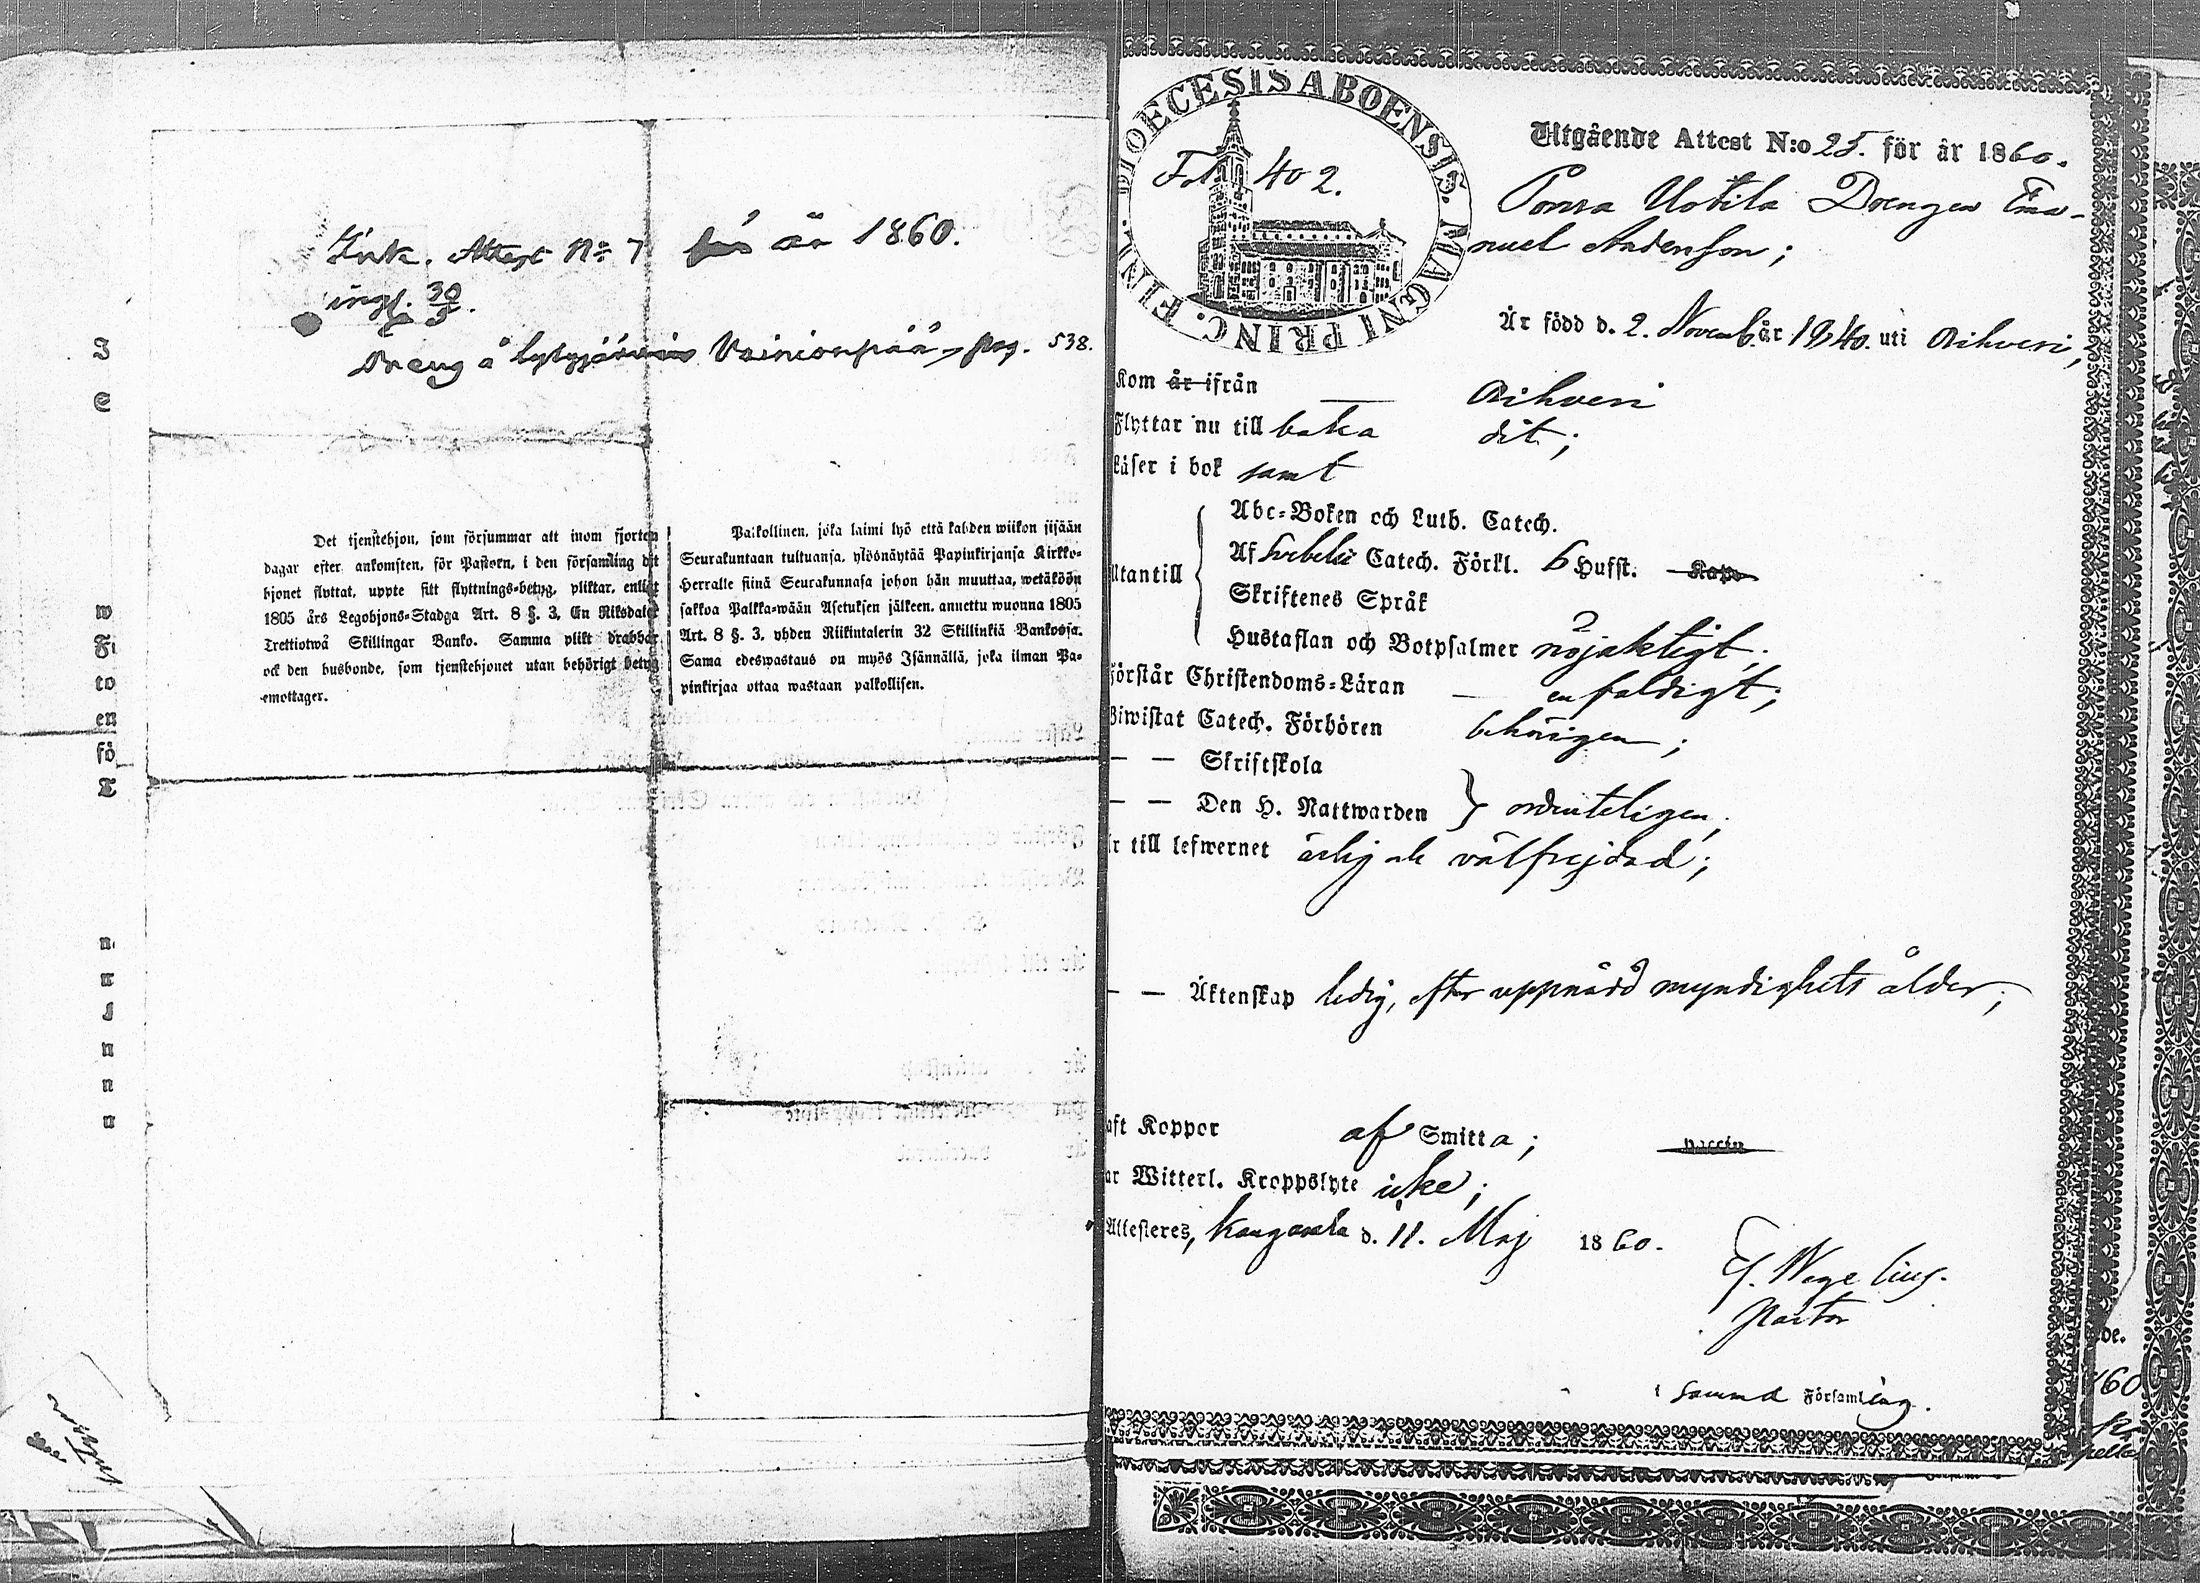 Ink. Attest No 7 för år 1860.
ingf. 30/5.
Dreng å Vainionpää, pag. 538.
Det tjenstehjon, som försummar att inom fjorton
dagar efter ankomsten, för Pastorn, i den församling dit
hjonet flyttat, uppte sitt flyttnings-betyg, pliktar, enligt
1805 års Legohjons-Stadga Art. 8 §. 3, En Riksdaler
Trettiotwå Skillingar Banko. Samma plikt drabbar
ock den husbonde, som tjenstehjonet utan behörigt betyg
emottager.
Palkollinen, joka laimi lyö että kahden wiikon sisään
Seurakuntaan tultuansa, ylösnäytää Papinkirjansa Kirkko-
Herralle siinä Seurakunnasa johon hän muuttaa, wetäköön
sakkoa Palkka-wään Asetuksen jälkeen, annettu wuonna 1805
Art. 8 §. 3, yhden Riikintalerin 32 Skillinkiä Bankossa.
Sama edeswastaus on myös Isännällä, joka ilman Pa-
pinkirjaa ottaa wastaan palkollisen.
DIOECESIS ABOENSIS. MAGNI PRINC. FINL.
Fol. 402.
Utgående Attest N:o 25. för år 1860.
Ponsa Uotila Drengen Ema-
nuel Andersson;
Är född d. 2. Novemb. år 1840. uti Orihvesi,
Kom år ifrån — Orihvesi
Flyttar nu till baka dit;
Läser i bok samt
Utantill
Abc-Boken och Luth. Catech.
Af Svebelii Catech. Förkl. 6 Hufst.
Skriftenes Språk
Hustaflan och Botpsalmer nöjaktigt;
Förstår Christendoms-Läran — enfaldigt;
Biwistat Catech. Förhören behörigen;
— — Skriftskola
— — Den H. Nattwarden } ordenteligen;
Är till lefwernet ärlig och välfrejdad;
— — Äktenskap ledig, efter uppnådd myndighets ålder;
aft Koppor af Smitta; vaccin
ar Witterl. Kroppslyte icke;
Attesteres, Kangasala d. 11. Maj 1860.
Wegelius.
Pastor
i samma Församling.